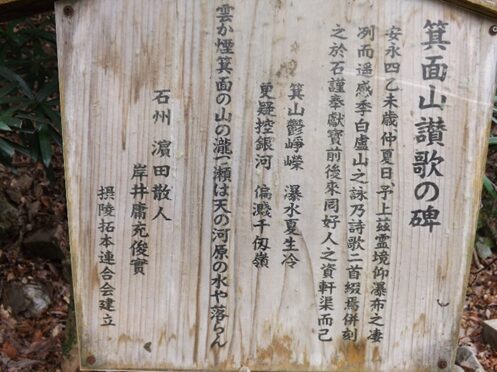 箕面山讃歌の碑
安永四乙未歳仲夏日、予上玆霊境仰瀑布之凄
冽而遥感李白盧山之詠乃詩歌二首綴焉併刻
之於石謹奉献寶前後來同好人之資軒渠而已
箕山欝崢嶸 瀑水夏生冷
更疑控銀河 偏濺千仭嶺
雲か煙箕面の山の瀧つ瀬は天の河原の水や落らん
石州 濵田散人
岸井庸充俊實
摂陵拓本連合会建立